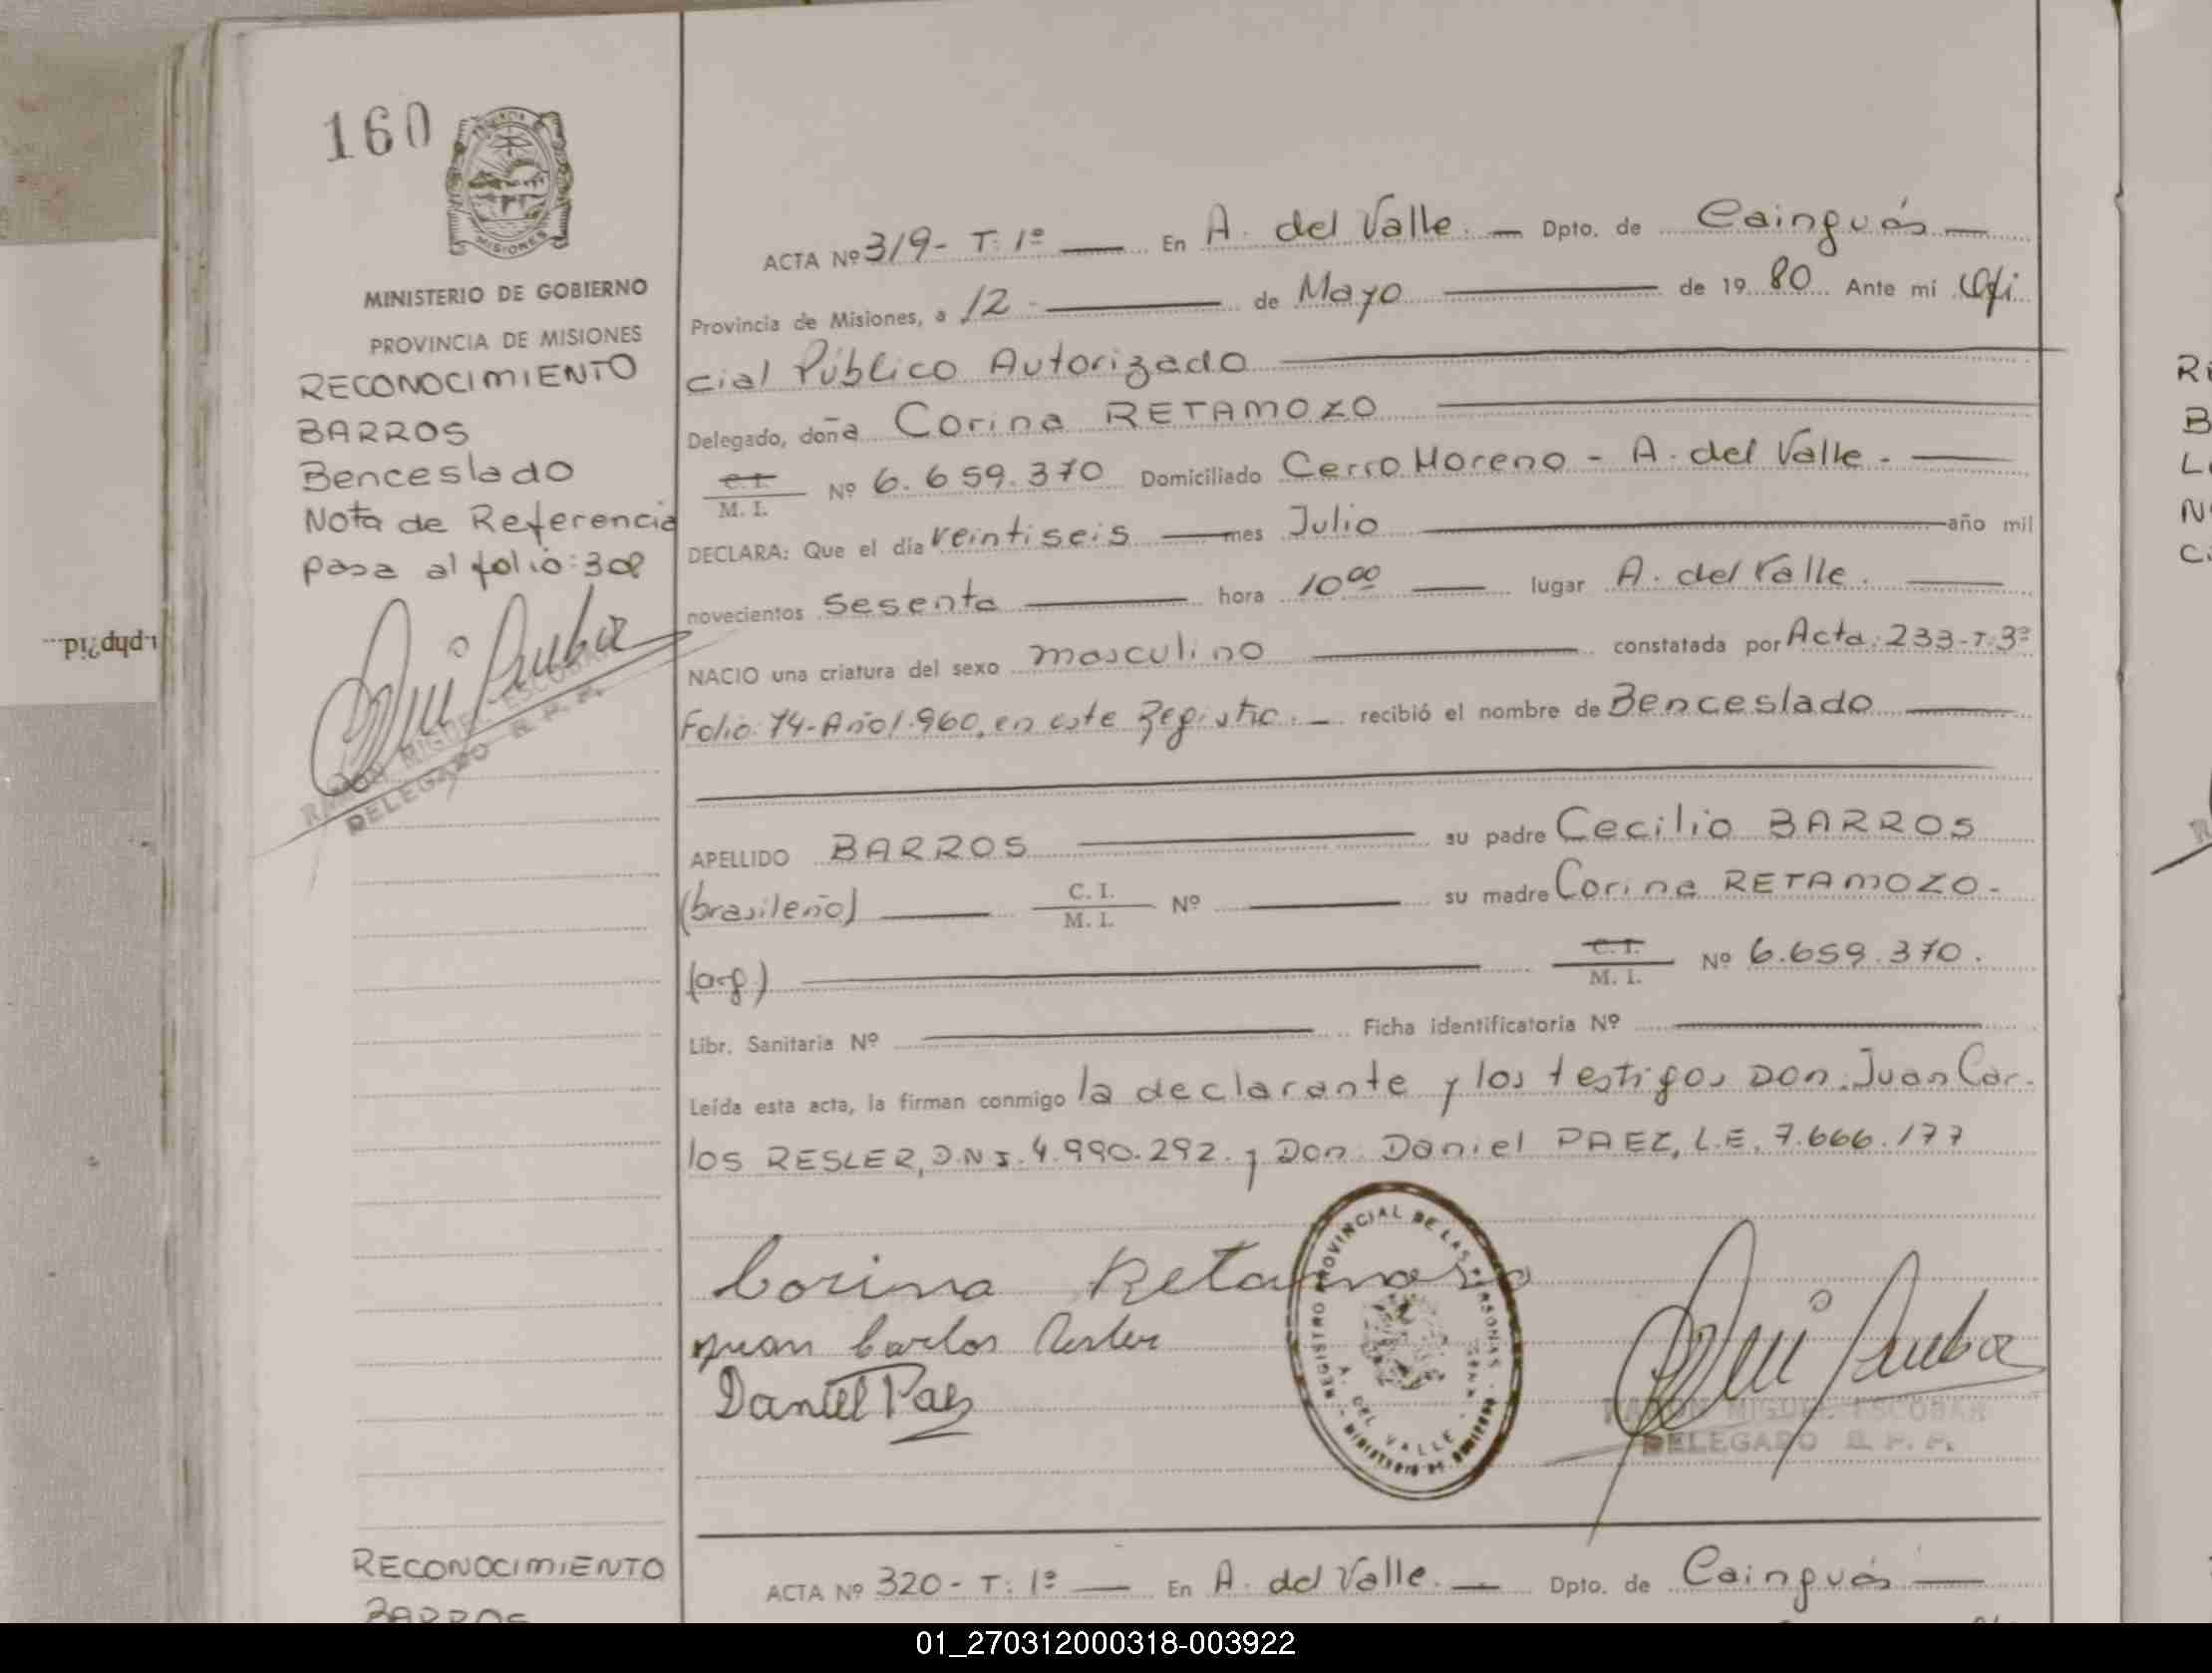 160
PROVINCIA DE
MISIONES
MINISTERIO DE GOBIERNO
PROVINCIA DE MISIONES
RECONOCIMIENTO
BARROS
Benceslado
Nota de Referencia
pasa al folio: 308
RAMON MIGUEL ESCOBAR
DELEGADO R. P. P.
ACTA Nº 319- T: 1º — En A. del Valle. — Dpto. de Cainguás —
Provincia de Misiones, a 12 — de Mayo — de 1980 Ante mí Ofi
cial Público Autorizado
Delegado, doña Corina RETAMOZO
C.I.
M. I. Nº 6.659.370 Domiciliado Cerro Moreno - A. del Valle. —
DECLARA: Que el día veintiseis — mes Julio — año mil
novecientos sesenta — hora 10⁰⁰ — lugar A. del Valle. —
NACIO una criatura del sexo masculino — constatada por Acta: 233-T:3º
Folio: 74-Año 1.960, en este Registro. — recibió el nombre de Benceslado —
APELLIDO BARROS — su padre Cecilio BARROS
(brasileño) — C. I.
M. I. Nº — su madre Corina RETAMOZO-
(arg.) — C. I.
M. I. Nº 6.659.370.
Libr. Sanitaria Nº — Ficha identificatoria Nº —
Leída esta acta, la firman conmigo la declarante y los testigos Don. Juan Car-
los RESLER, D.N.I. 4.990.292. y Don. Daniel PAEZ, L.E. 7.666.177
Corina Retamozo
Juan Carlos Resler
Daniel Paez
REGISTRO PROVINCIAL DE LAS PERSONAS
A. DEL VALLE
MINISTERIO DE GOBIERNO
RAMON MIGUEL ESCOBAR
DELEGADO R. P. P.
RECONOCIMIENTO
BARROS
ACTA Nº 320- T: 1º — En A. del Valle. — Dpto. de Cainguás —
01_270312000318-003922